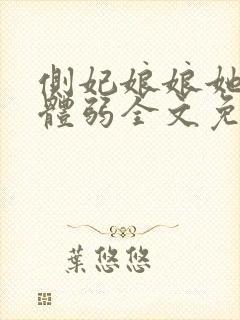 側妃娘娘她
體弱全文免
葉悠悠